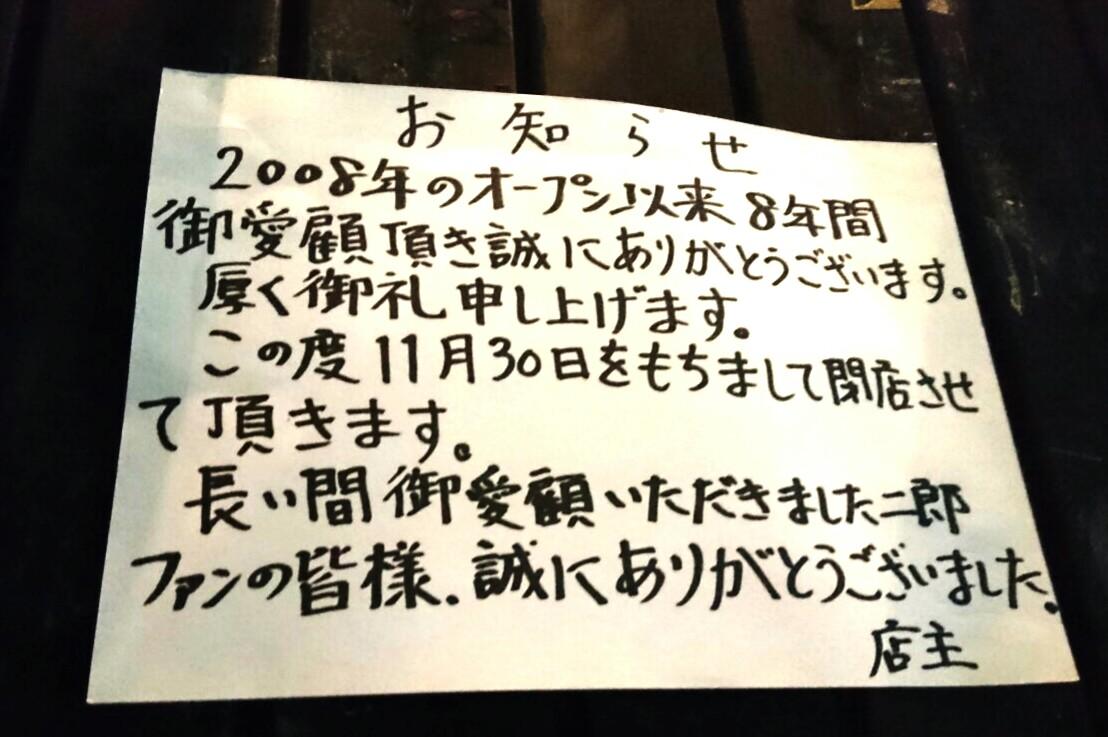 お知らせ
2008年のオープン以来8年間
御愛顧頂き誠にありがとうございます。
厚く御礼申し上げます。
この度11月30日をもちまして閉店させ
て頂きます。
長い間御愛顧いただきました二郎
ファンの皆様.誠にありがとうございました。
店主